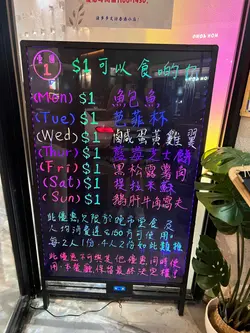 $1可以食的
(Mon) $1 鮑魚
(Tue) $1 芭菲杯
(Wed) $1 鹹蛋黃雞翼
(Thur) $1 士餅
(Fri) $1 黑松露薯角
(Sat) $1 提拉米蘇
(Sun) $1 鵝肝牛肉窩夫
此優惠只限於晚市堂食及
人均消費達$150方可使用。
每2人1份,4人2份如此類推
此優惠不可與其他優惠同時使
用,本餐廳保留最終決定權!